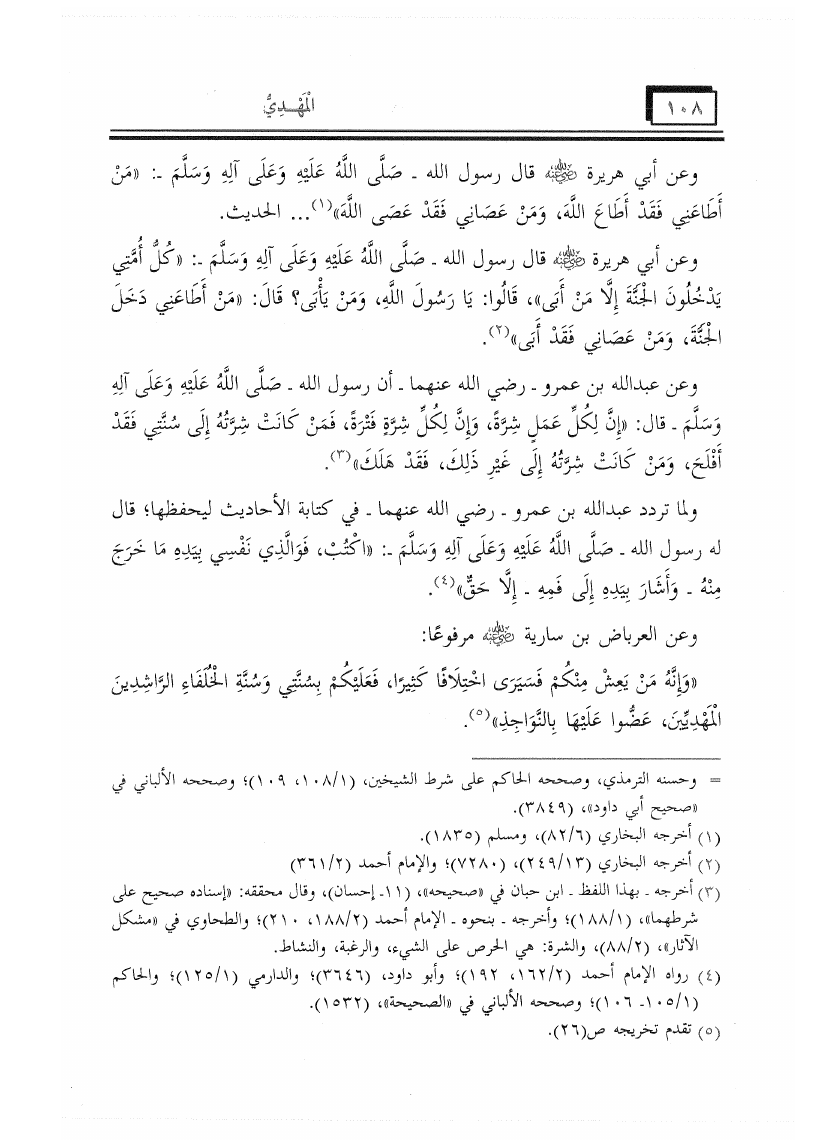 ١٠٨
الْمَهْـدِيُّ
وعن أبي هريرة رضي الله عنه قال رسول الله ـ صَلَّى اللَّهُ عَلَيْهِ وَعَلَى آلِهِ وَسَلَّمَ ـ: «مَنْ
أَطَاعَنِي فَقَدْ أَطَاعَ اللَّهَ، وَمَنْ عَصَانِي فَقَدْ عَصَى اللَّهَ»(١)... الحديث.
وعن أبي هريرة رضي الله عنه قال رسول الله ـ صَلَّى اللَّهُ عَلَيْهِ وَعَلَى آلِهِ وَسَلَّمَ ـ: «كُلُّ أُمَّتِي
يَدْخُلُونَ الْجَنَّةَ إِلَّا مَنْ أَبَى»، قَالُوا: يَا رَسُولَ اللَّهِ، وَمَنْ يَأْبَى؟ قَالَ: «مَنْ أَطَاعَنِي دَخَلَ
الْجَنَّةَ، وَمَنْ عَصَانِي فَقَدْ أَبَى»(٢).
وعن عبدالله بن عمرو ـ رضي الله عنهما ـ أن رسول الله ـ صَلَّى اللَّهُ عَلَيْهِ وَعَلَى آلِهِ
وَسَلَّمَ ـ قال: «إِنَّ لِكُلِّ عَمَلٍ شِرَّةً، وَإِنَّ لِكُلِّ شِرَّةٍ فَتْرَةً، فَمَنْ كَانَتْ شِرَّتُهُ إِلَى سُنَّتِي فَقَدْ
أَفْلَحَ، وَمَنْ كَانَتْ شِرَّتُهُ إِلَى غَيْرِ ذَلِكَ، فَقَدْ هَلَكَ»(٣).
ولما تردد عبدالله بن عمرو ـ رضي الله عنهما ـ في كتابة الأحاديث ليحفظها؛ قال
له رسول الله ـ صَلَّى اللَّهُ عَلَيْهِ وَعَلَى آلِهِ وَسَلَّمَ ـ: «اكْتُبْ، فَوَالَّذِي نَفْسِي بِيَدِهِ مَا خَرَجَ
مِنْهُ ـ وَأَشَارَ بِيَدِهِ إِلَى فَمِهِ ـ إِلَّا حَقٌّ»(٤).
وعن العرباض بن سارية رضي الله عنه مرفوعًا:
«وَإِنَّهُ مَنْ يَعِشْ مِنْكُمْ فَسَيَرَى اخْتِلَافًا كَثِيرًا، فَعَلَيْكُمْ بِسُنَّتِي وَسُنَّةِ الْخُلَفَاءِ الرَّاشِدِينَ
الْمَهْدِيِّينَ، عَضُّوا عَلَيْهَا بِالنَّوَاجِذِ»(٥).
= وحسنه الترمذي، وصححه الحاكم على شرط الشيخين، (١٠٨/١، ١٠٩)؛ وصححه الألباني في
«صحيح أبي داود»، (٣٨٤٩).
(١) أخرجه البخاري (٨٢/٦)، ومسلم (١٨٣٥).
(٢) أخرجه البخاري (٢٤٩/١٣)، (٧٢٨٠)؛ والإمام أحمد (٣٦١/٢)
(٣) أخرجه ـ بهذا اللفظ ـ ابن حبان في «صحيحه»، (١١ـ إحسان)، وقال محققه: «إسناده صحيح على
شرطهما»، (١٨٨/١)؛ وأخرجه ـ بنحوه ـ الإمام أحمد (١٨٨/٢، ٢١٠)؛ والطحاوي في «مشكل
الآثار»، (٨٨/٢)، والشرة: هي الحرص على الشيء، والرغبة، والنشاط.
(٤) رواه الإمام أحمد (١٦٢/٢، ١٩٢)؛ وأبو داود، (٣٦٤٦)؛ والدارمي (١٢٥/١)؛ والحاكم
(١٠٥/١ـ ١٠٦)؛ وصححه الألباني في «الصحيحة»، (١٥٣٢).
(٥) تقدم تخريجه ص(٢٦).